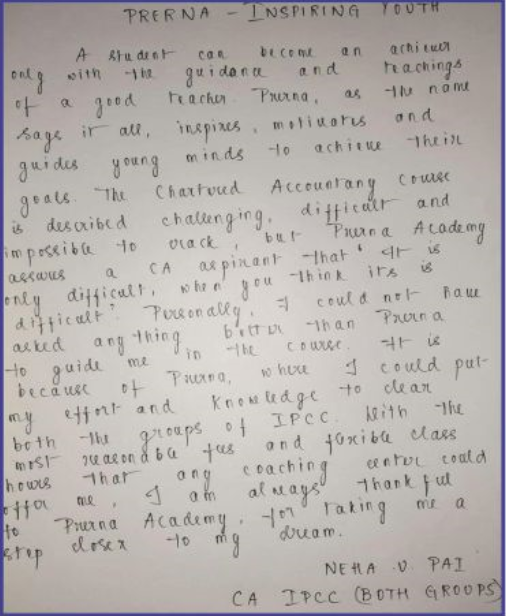 PRERNA - INSPIRING YOUTH
A student can become an achiever
only with the guidance and teachings
of a good teacher Prerna, as the name
says it all, inspires, motivates and
guides young minds to achieve their
goals. The Chartered Accountany course
is described challenging, difficult and
impossible to crack, but Prerna Academy
assures a CA aspirant that 'It is
only difficult, when you think its is
difficult'. Personally, I could not have
asked any thing better than Prerna
to guide me in the course. It is
because of Prerna, where I could put
my effort and knowledge to clear
both the groups of IPCC. With the
most reasonable fees and flexible class
hours that any coaching center could
offer me, I am always thankful
to Prerna Academy, for taking me a
step closer to my dream.
NEHA .U. PAI
CA IPCC (BOTH GROUPS)